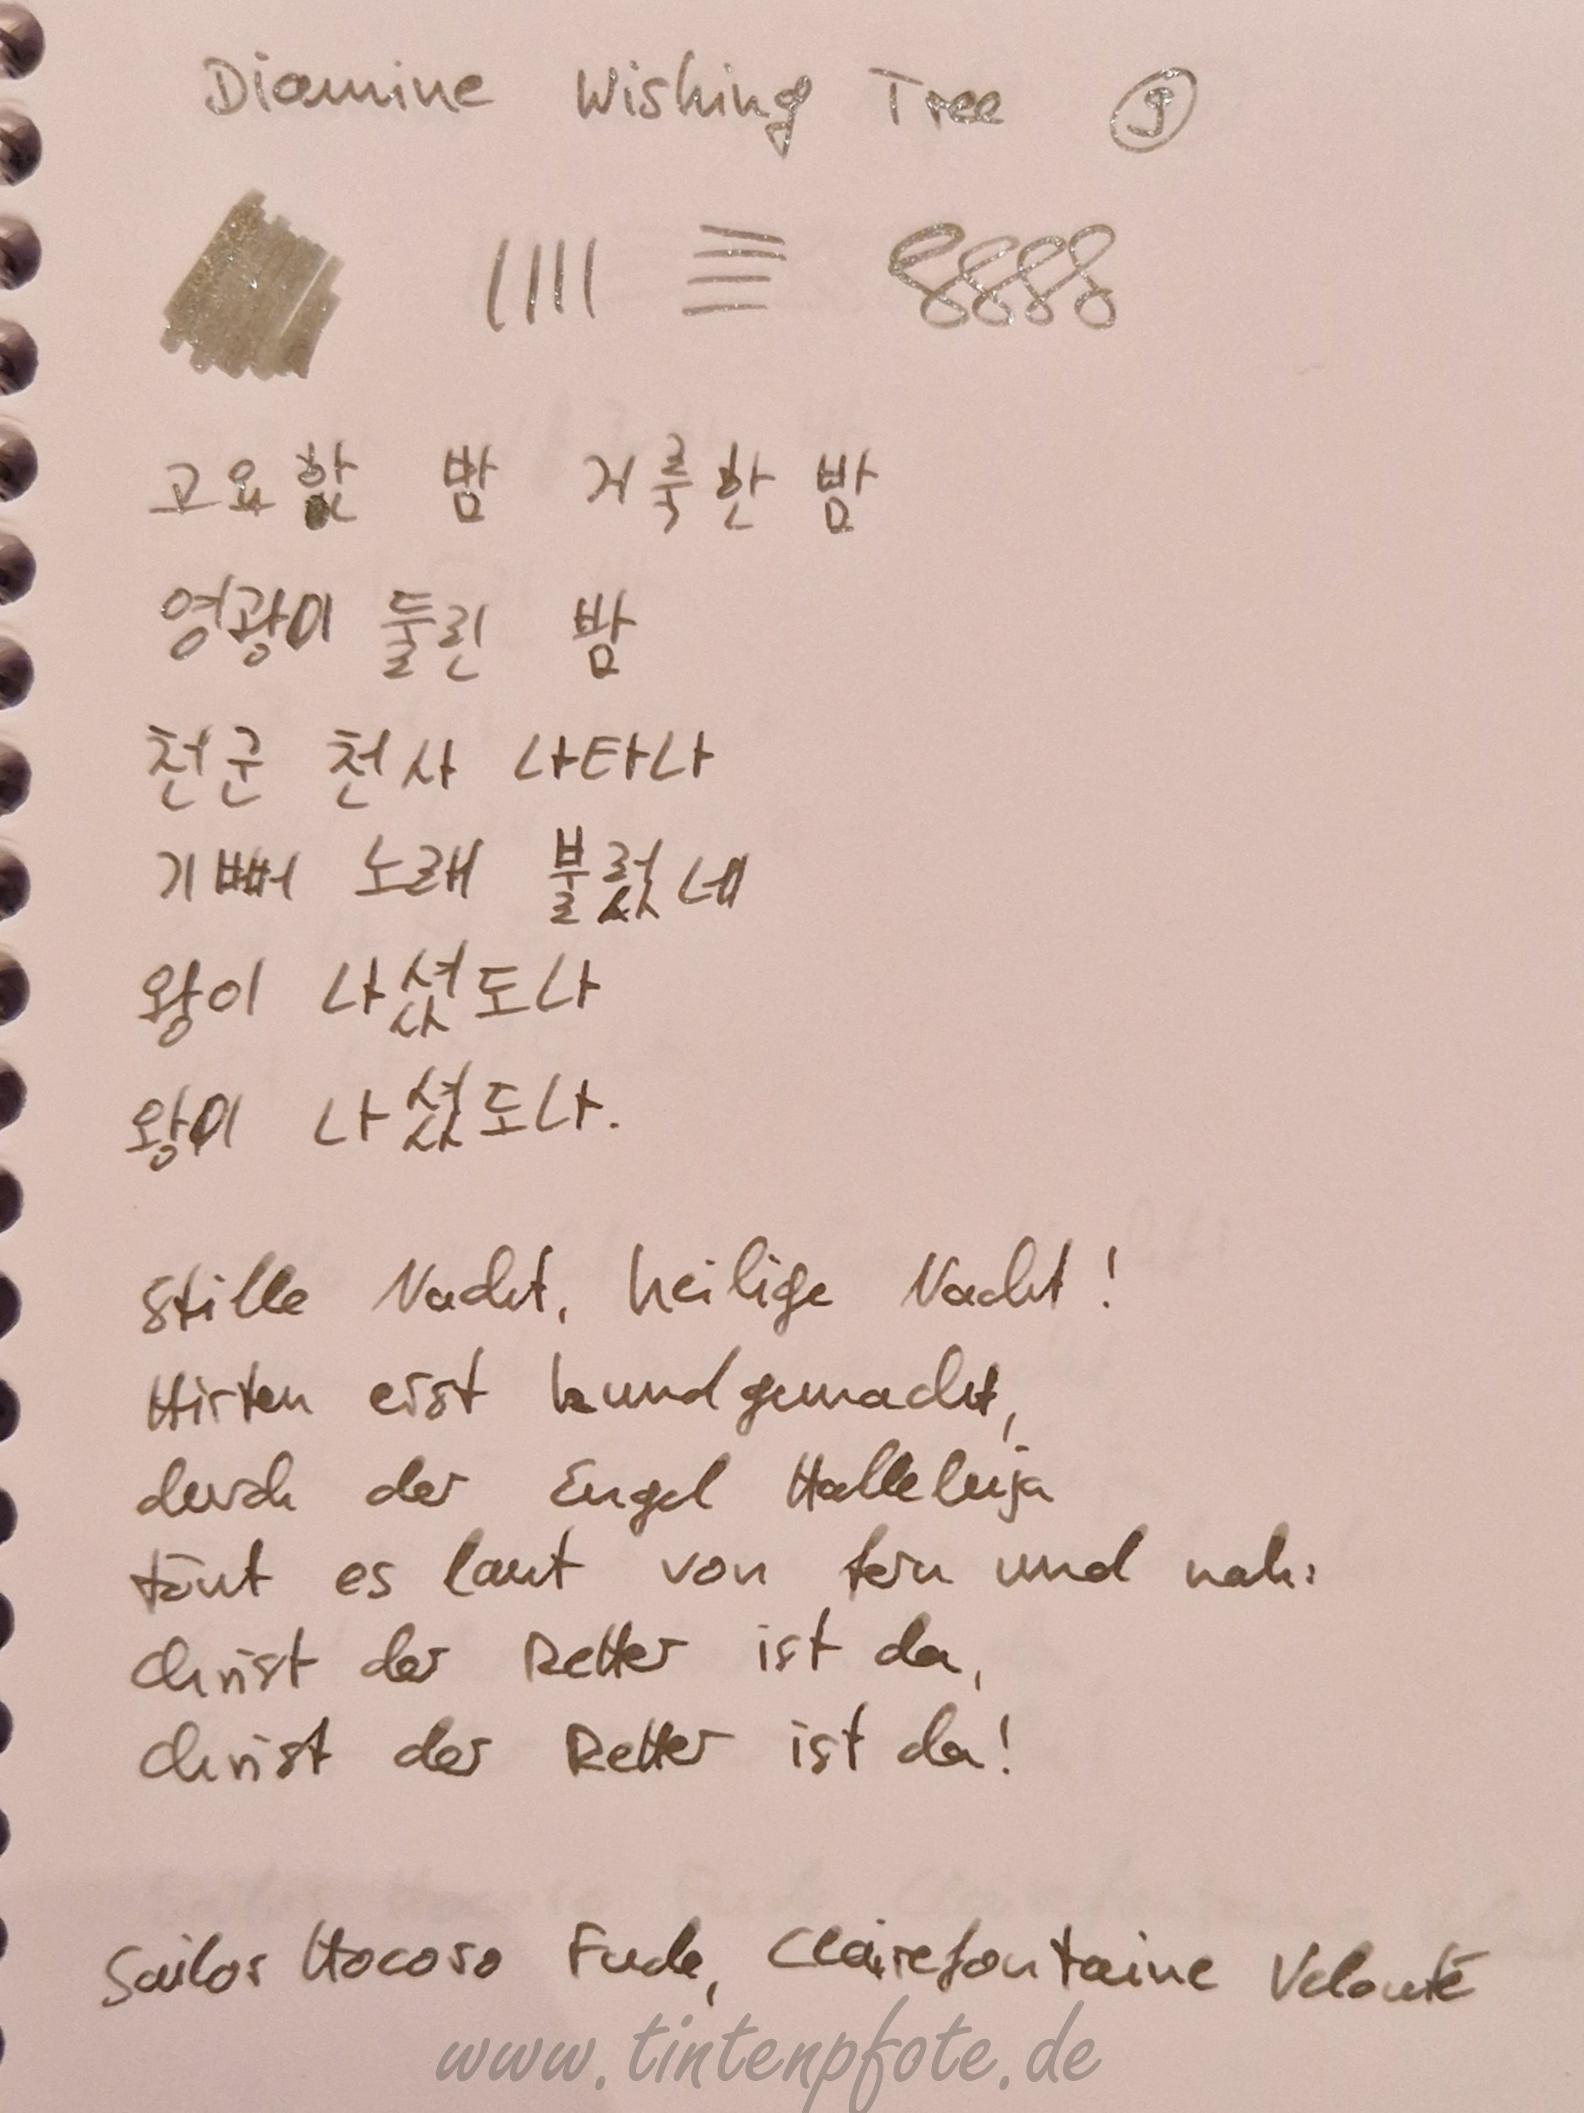 Diamine Wishing Tree 9
고요한 밤 거룩한 밤
영광이 둘린 밤
천군 천사 나타나
기뻐 노래 불렀네
왕이 나셨도나
왕이 나셨도나.
Stille Nacht, heilige Nacht!
Hirten erst kundgemacht,
durch der Engel Halleluja
tönt es laut von fern und nah:
Christ der Retter ist da,
Christ der Retter ist da!
Sailor Hocoro Fude, Clairefontaine Velouté
www.tintenpfote.de